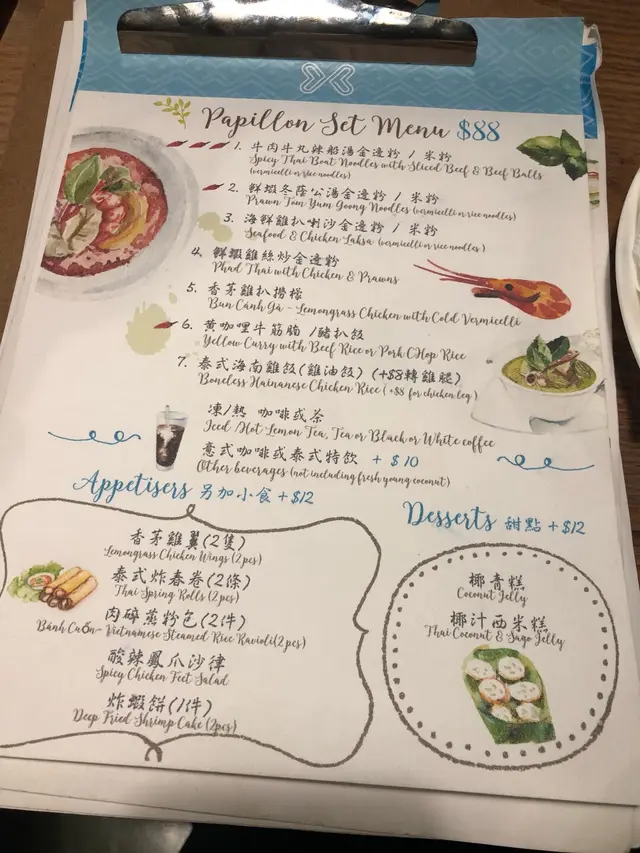 Papillon Set Menu $88
1. 牛肉牛丸辣船湯金邊粉 / 米粉
Spicy Thai Boat Noodles with Sliced Beef & Beef Balls
(vermicelli or rice noodles)
2. 鮮蝦冬蔭公湯金邊粉 / 米粉
Prawn Tom Yum Goong Noodles (vermicelli or rice noodles)
3. 海鮮雞扒喇沙金邊粉 / 米粉
Seafood & Chicken Laksa (vermicelli or rice noodles)
4. 鮮蝦雞絲炒金邊粉
Phad Thai with Chicken & Prawns
5. 香茅雞扒撈檬
Bun Cánh Gà - Lemongrass Chicken with Cold Vermicelli
6. 黃咖哩牛筋腩 / 豬扒飯
Yellow Curry with Beef Rice or Pork CHop Rice
7. 泰式海南雞飯(雞油飯) (+$8轉雞腿)
Boneless Hainanese Chicken Rice (+$8 for chicken leg)
凍/熱 咖啡或茶
Iced /Hot Lemon Tea, Tea or Black or White coffee
意式咖啡或泰式特飲 + $10
Other beverages (not including fresh young coconut)
Appetisers 另加小食 +$12
香茅雞翼(2隻)
Lemongrass Chicken Wings (2pcs)
泰式炸春卷(2條)
Thai Spring Rolls (2pcs)
肉碎蒸粉包(2件)
Bánh Cuốn- Vietnamese Steamed Rice Ravioli(2pcs)
酸辣鳳爪沙律
Spicy Chicken Feet Salad
炸蝦餅(1件)
Deep Fried Shrimp Cake (2pcs)
Desserts 甜點 +$12
椰青糕
Coconut Jelly
椰汁西米糕
Thai Coconut & Sago Jelly